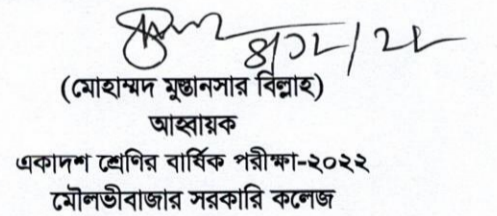 (মোহাম্মদ মুস্তানসার বিল্লাহ)
আহ্বায়ক
একাদশ শ্রেণির বার্ষিক পরীক্ষা-২০২২
মৌলভীবাজার সরকারি কলেজ